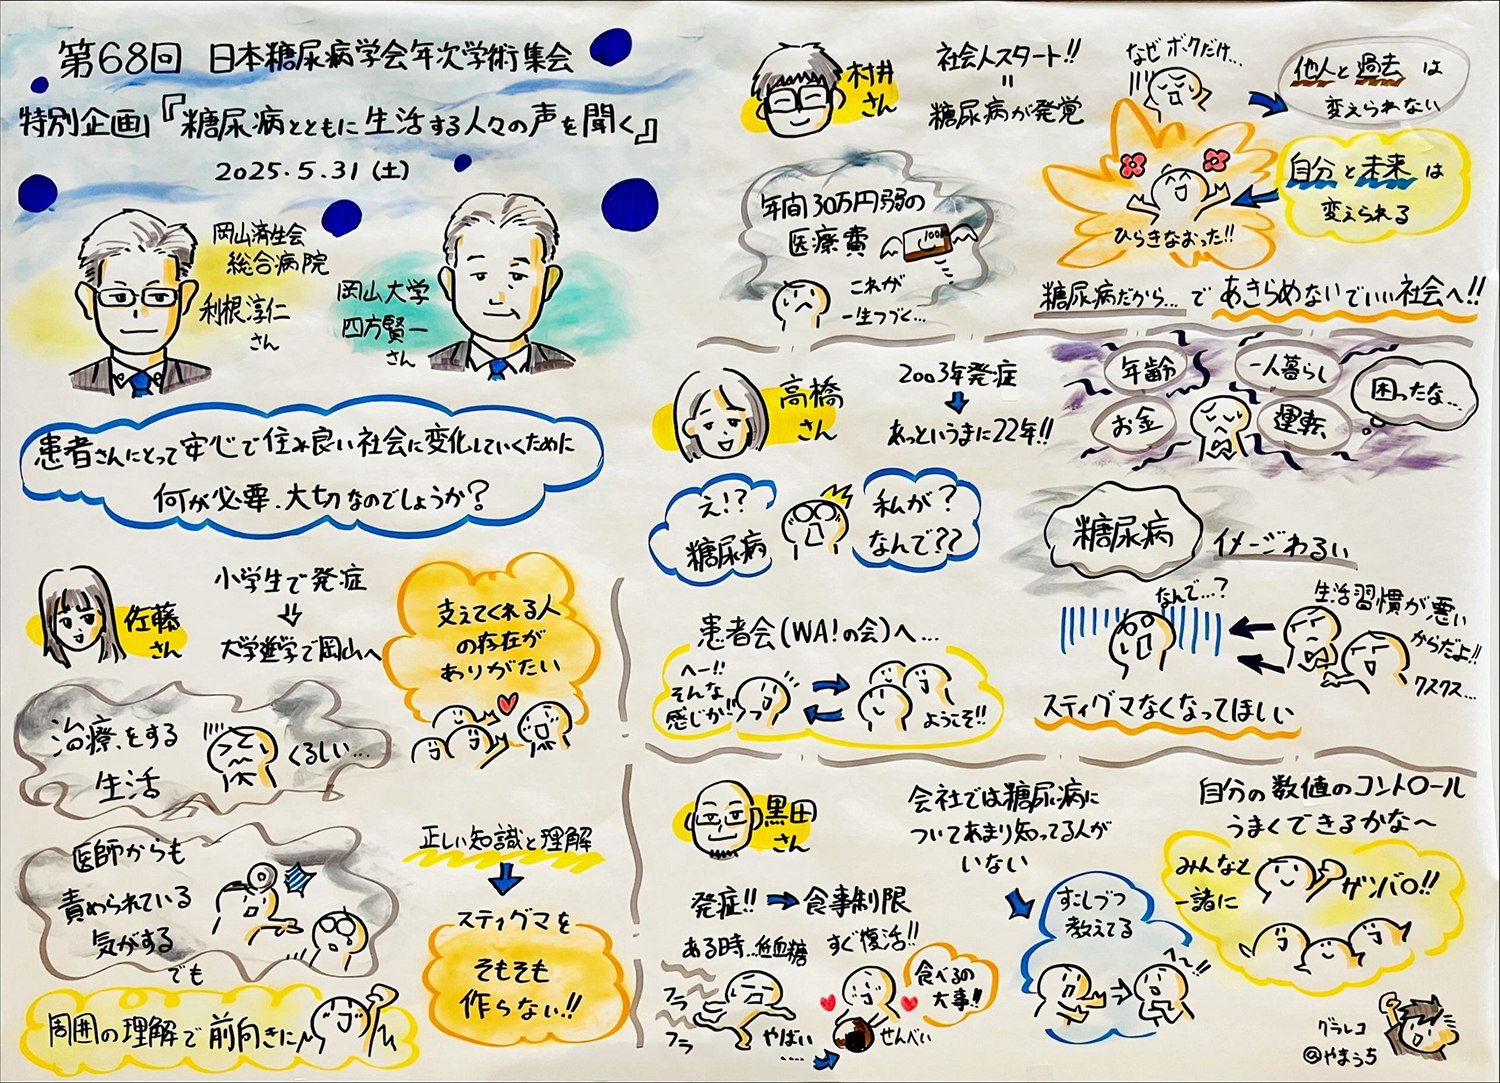 第68回 日本糖尿病学会年次学術集会
特別企画『糖尿病とともに生活する人々の声を聞く』
2025.5.31(土)
岡山済生会
総合病院
利根淳仁
さん
岡山大学
四方賢一
さん
患者さんにとって安心で住み良い社会に変化していくために
何が必要、大切なのでしょうか?
佐藤
さん
小学生で発症
大学進学で岡山へ
支えてくれる人
の存在が
ありがたい
治療をする
生活
くるしい…
医師からも
責められている
気がする
でも
周囲の理解で前向きに
正しい知識と理解
スティグマを
そもそも
作らない!!
村井
さん
社会人スタート!!
=
糖尿病が発覚
なぜボクだけ…
他人と過去は
変えられない
自分と未来は
変えられる
ひらきなおった!!
年間30万円弱の
医療費
1000
これが
一生つづく…
糖尿病だから…であきらめないでいい社会へ!!
高橋
さん
2003年発症
あっというまに22年!!
年齢
一人暮らし
お金
運転
困ったな…
え!?
糖尿病
私が?
なんで??
糖尿病
イメージわるい
なんで…?
生活習慣が悪い
からだよ!!
クスクス…
スティグマなくなってほしい
患者会(WA!の会)へ…
へー!!
そんな
感じか!!
ようこそ!!
黒田
さん
発症!!→食事制限
ある時…低血糖
すぐ復活!!
フラ
フラ
やばい
….
せんべい
食べるの
大事!!
会社では糖尿病に
ついてあまり知ってる人が
いない
すこしづつ
教えてる
へ〜!!
自分の数値のコントロール
うまくできるかな〜
みんなと
一緒に
ガンバロ!!
グラレコ
@やまうち